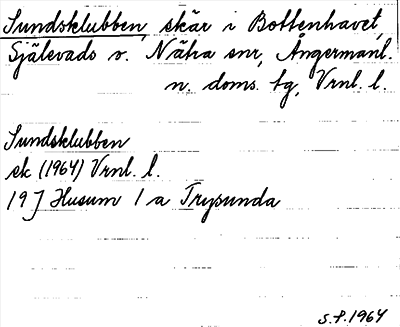 Sundsklubben, skär i Bottenhavet,
Själevads o. Nätra snr, Ångermanl.
n. doms. tg, Vrnl. l.
Sundsklubben
sk (1964) Vrnl. l.
19 J Husum 1 a Trysunda
S.P. 1964